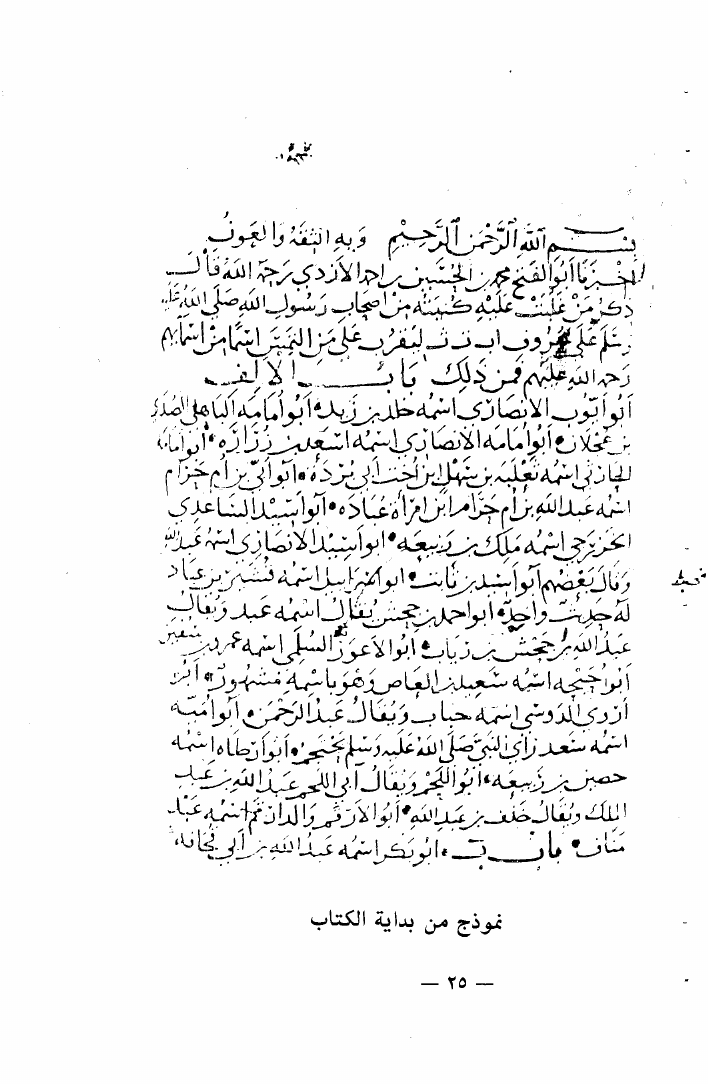 بسم الله الرحمن الرحيم وبه الثقة والعون
اخبرنا ابو الفتح محمد بن الحسين بن احمد الازدي رحمه الله قال
ذكر من غلبت عليه كنيته من اصحاب رسول الله صلى الله عليه
وسلم على حروف ا ب ت ث ليقرب على من التمس اسما من اسمايهم
رحمة الله عليهم فمن ذلك باب الالف
ابو ايوب الانصاري اسمه خلد بن زيد ابو امامه الباهلي الصدي
بن عجلان ابو امامه الانصاري اسمه اسعد بن زراره ابو امامه
اسمه ثعلبه بن سهل ابن اخت ابي برده ابو ابي بن ام حرام
اسمه عبد الله بن ام حرام ابن امراة عباده ابو اسيد الساعدي
الخزرجي اسمه ملك بن ربيعه ابو اسيد الانصاري اسمه عبد الله
وقال بعضهم ابو اسيد بن ثابت ابو اسمه
له حديث واحد ابو احمد بن جحش يقال اسمه عبد ويقال
عبد الله بن جحش بن رياب ابو الاعور السلمي اسمه عمرو بن سفين
ابو احيحه اسمه سعيد بن العاص وهو باسمه مشهور ابو
اروى الدوسي اسمه ويقال عبد الرحمن ابو اميه
اسمه سعد راى النبي صلى الله عليه وسلم يحتجم ابو ارطاه اسمه
حصين بن ربيعه ابو اللحم ويقال ابي اللحم عبد الله بن عبد
الملك ويقال خلف بن عبد الله ابو الارقم والد ارقم اسمه عبد
مناف باب ب ابو بكر اسمه عبد الله بن ابي قحافه
نموذج من بداية الكتاب
— ٢٥ —